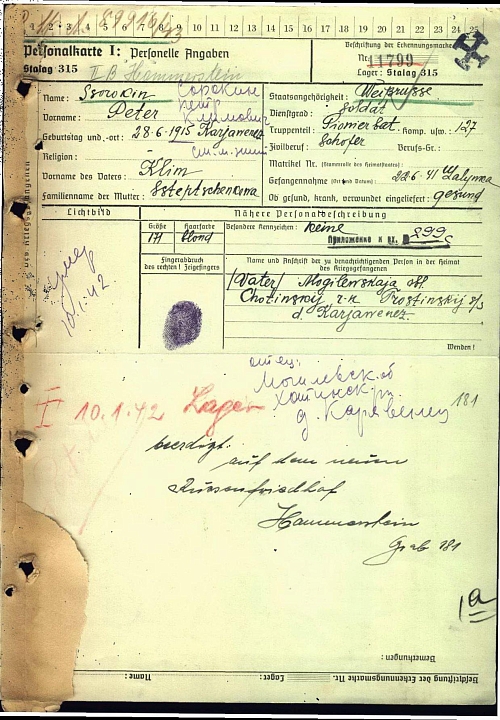 1 2 3 4 5 6 7 8 9 10 11 12 13 14 15 16 17 18 19 20 21 22 23 24 25
Personalkarte I: Personelle Angaben
Beschriftung der Erkennungsmarke
Stalag 315 II B Hammerstein
Nr. 11799
Lager: Stalag 315
Name: Ssorokin Сорокин
Staatsangehörigkeit: Weißrusse
Vorname: Peter Петр Климович
Dienstgrad: Soldat
Truppenteil: Pionier Bat. Komp. usw.: 127
Geburtstag und -ort: 28.6.1915 Karjawenez
Religion:
Zivilberuf: Schofer Berufs-Gr.:
Vorname des Vaters: Klim
Matrikel Nr. (Stammrolle des Heimatstaates)
Gefangennahme (Ort und Datum): 22.6.41
Familienname der Mutter:
Ob gesund, krank, verwundet eingeliefert: gesund
des Kriegsgefangenen
Lichtbild
Nähere Personalbeschreibung
Größe Haarfarbe Besondere Kennzeichen: keine
171 blond
Приложение к вх. № 899с
Fingerabdruck
des rechten! Zeigefingers
Name und Anschrift der zu benachrichtigenden Person in der Heimat
des Kriegsgefangenen
/Vater/ Mogilewskaja obl.
Chotinskij r-k Prostinskij s/s
d. Karjawenez.
Wenden!
умер
10.1.42
отец:
Могилевск. об
Хотинск р.
д. Карявенец
181
I 10.1.42 Lager
beerdigt:
auf dem neuen
Russenfriedhof
Hammerstein
Grab 181
1a
Bemerkungen:
Beschriftung der Erkennungsmarke Nr. Lager: Name:
Stalag 315